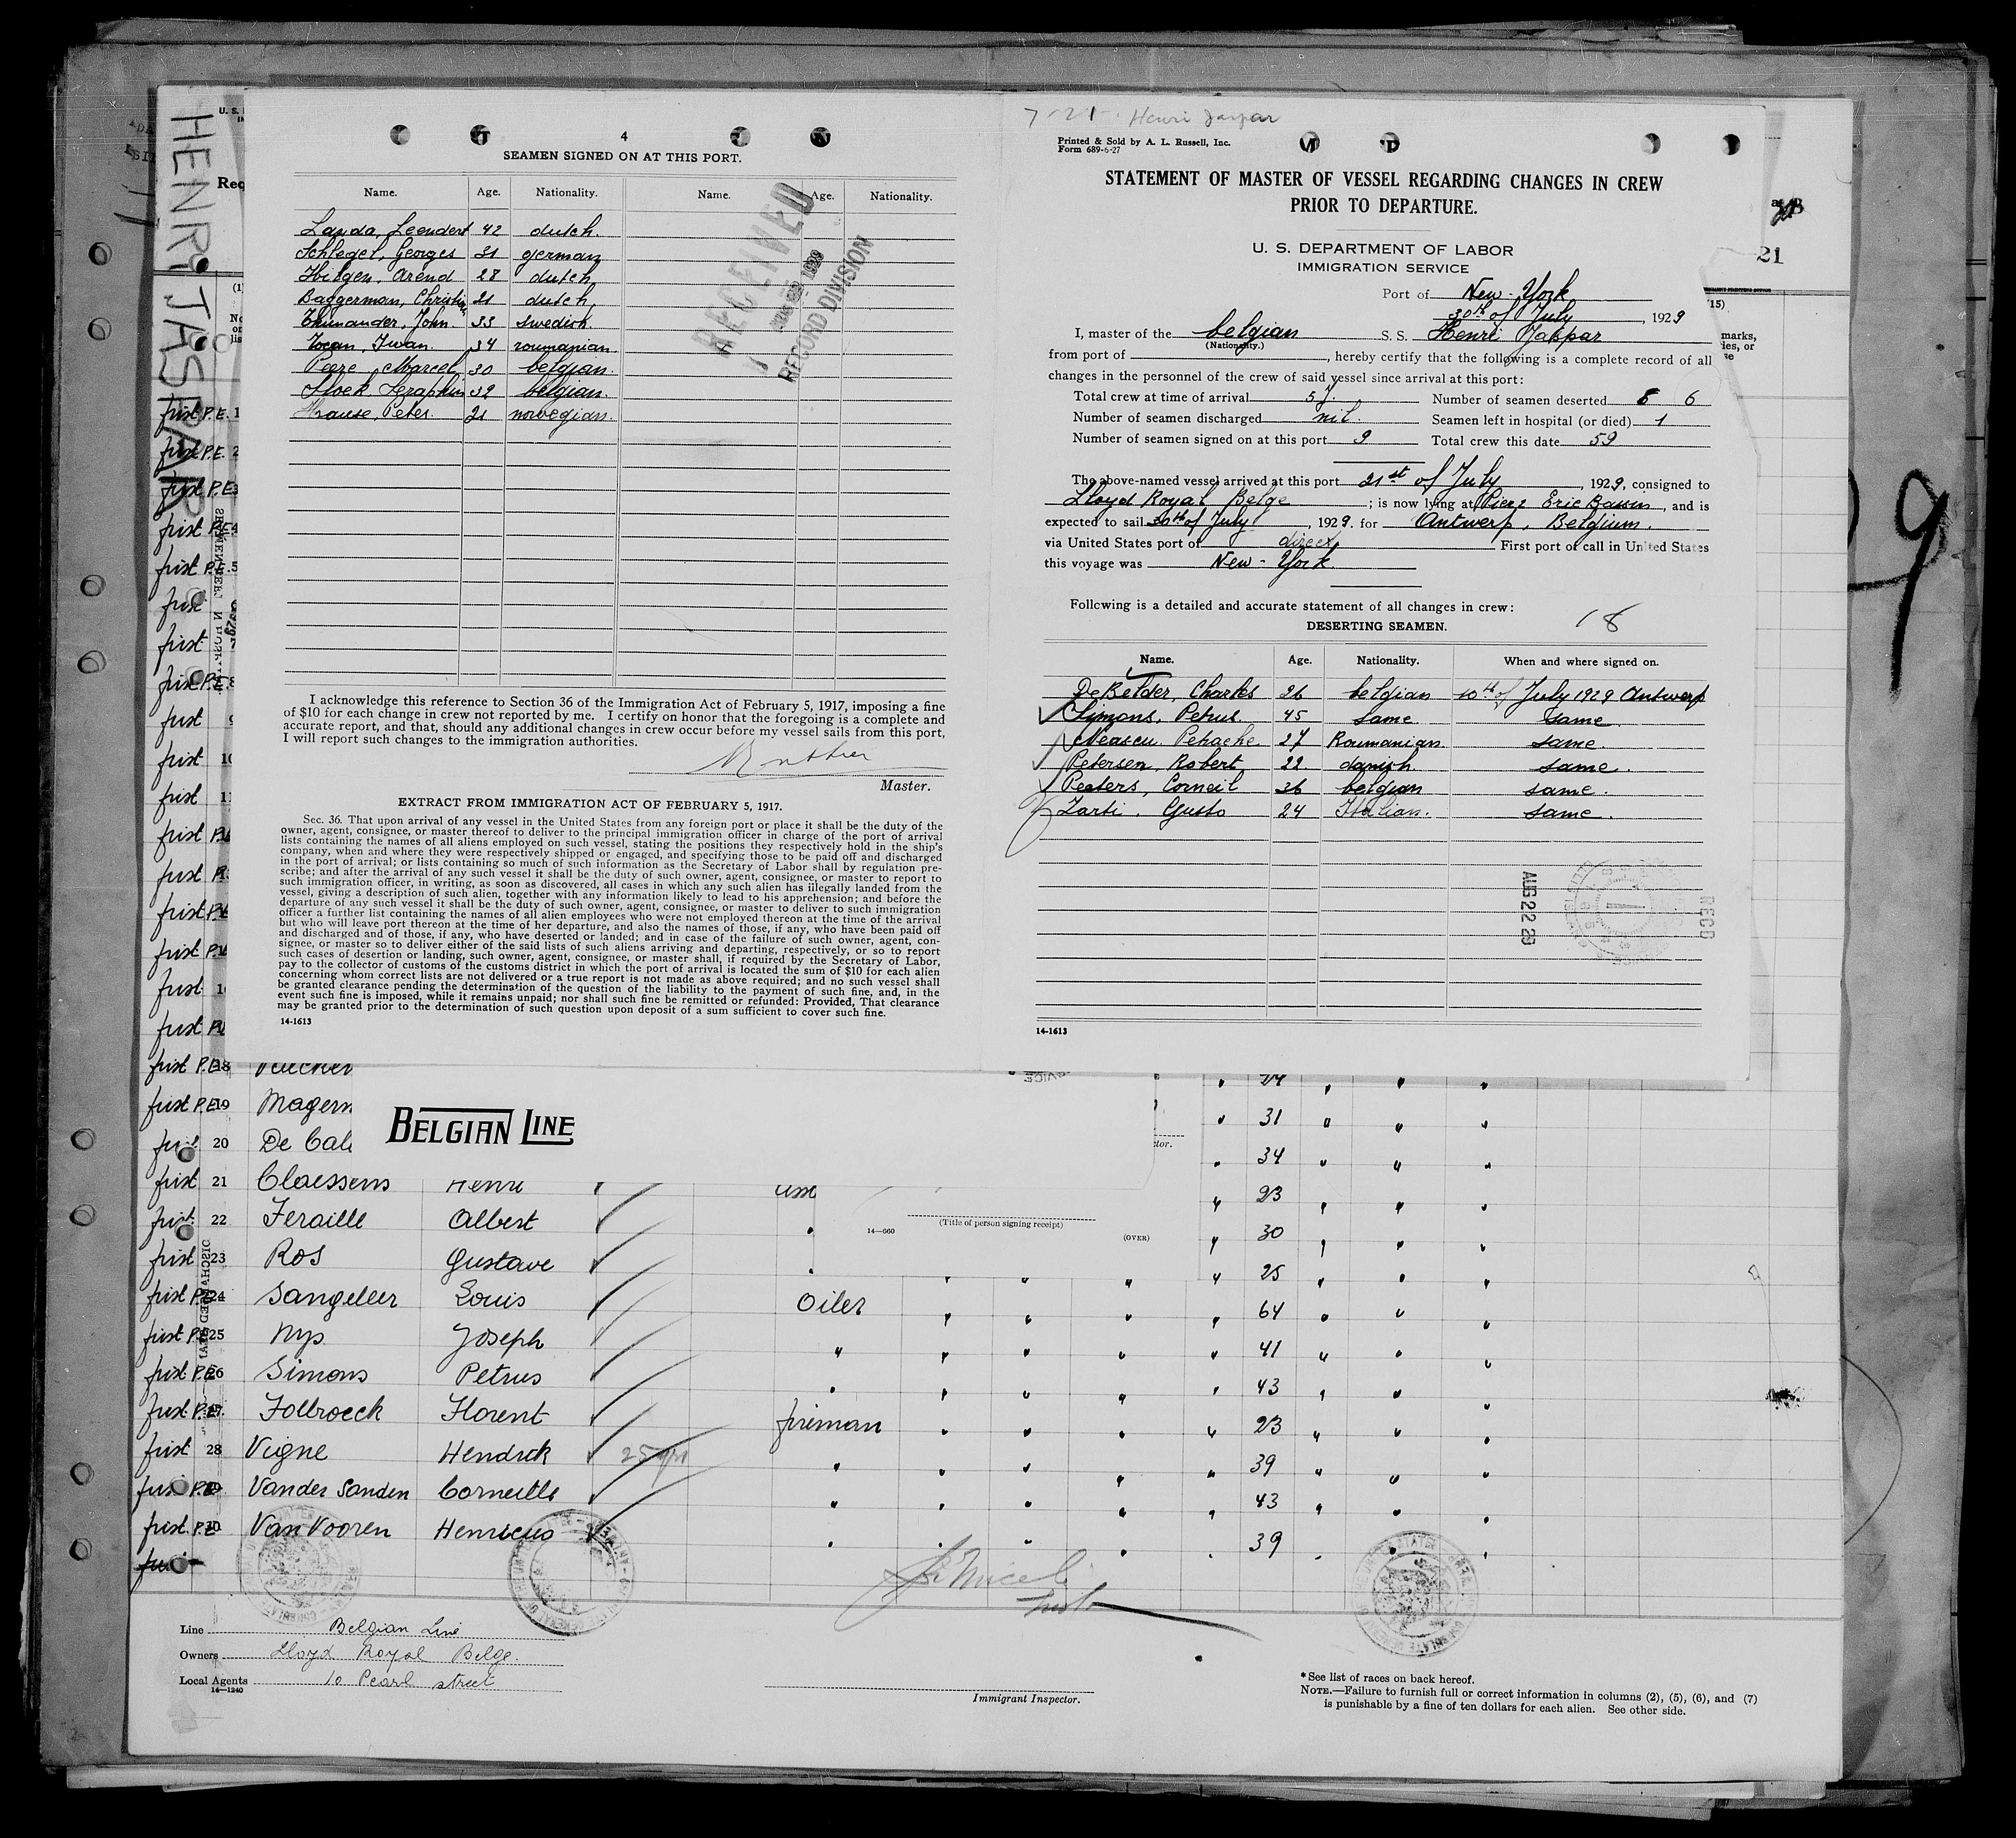 HENRI JASPAR
4
SEAMEN SIGNED ON AT THIS PORT.
Name. Age. Nationality. Name. Age. Nationality.
Landa, Leendert 42 dutch.
Schlegel, Georges 31 german
Hilgen, Arend 28 dutch
Baggerman, Christian 21 dutch,
Thunander, John. 33 swedish.
Tocan, Iwan. 34 roumanian.
Peere, Marcel 30 belgian
Stock Seraphin 32 belgian.
Krause, Peter. 21 norvegian.
RECEIVED
1929
RECORD DIVISION
I acknowledge this reference to Section 36 of the Immigration Act of February 5, 1917, imposing a fine
of $10 for each change in crew not reported by me. I certify on honor that the foregoing is a complete and
accurate report, and that, should any additional changes in crew occur before my vessel sails from this port,
I will report such changes to the immigration authorities.
Master.
EXTRACT FROM IMMIGRATION ACT OF FEBRUARY 5, 1917.
Sec. 36. That upon arrival of any vessel in the United States from any foreign port or place it shall be the duty of the
owner, agent, consignee, or master thereof to deliver to the principal immigration officer in charge of the port of arrival
lists containing the names of all aliens employed on such vessel, stating the positions they respectively hold in the ship's
company, when and where they were respectively shipped or engaged, and specifying those to be paid off and discharged
in the port of arrival; or lists containing so much of such information as the Secretary of Labor shall by regulation pre-
scribe; and after the arrival of any such vessel it shall be the duty of such owner, agent, consignee, or master to report to
such immigration officer, in writing, as soon as discovered, all cases in which any such alien has illegally landed from the
vessel, giving a description of such alien, together with any information likely to lead to his apprehension; and before the
departure of any such vessel it shall be the duty of such owner, agent, consignee, or master to deliver to such immigration
officer a further list containing the names of all alien employees who were not employed thereon at the time of the arrival
but who will leave port thereon at the time of her departure, and also the names of those, if any, who have been paid off
and discharged and of those, if any, who have deserted or landed; and in case of the failure of such owner, agent, con-
signee, or master so to deliver either of the said lists of such aliens arriving and departing, respectively, or so to report
such cases of desertion or landing, such owner, agent, consignee, or master shall, if required by the Secretary of Labor,
pay to the collector of customs of the customs district in which the port of arrival is located the sum of $10 for each alien
concerning whom correct lists are not delivered or a true report is not made as above required; and no such vessel shall
be granted clearance pending the determination of the question of the liability to the payment of such fine, and, in the
event such fine is imposed, while it remains unpaid; nor shall such fine be remitted or refunded: Provided, That clearance
may be granted prior to the determination of such question upon deposit of a sum sufficient to cover such fine.
14-1613
7-21- Henri Jaspar
Printed & Sold by A. L. Russell, Inc.
Form 689-6-27
STATEMENT OF MASTER OF VESSEL REGARDING CHANGES IN CREW
PRIOR TO DEPARTURE.
U. S. DEPARTMENT OF LABOR
IMMIGRATION SERVICE
Port of New-York
30th of July, 1929
I, master of the belgian S. S. Henri Jaspar
(Nationality.)
from port of , hereby certify that the following is a complete record of all
changes in the personnel of the crew of said vessel since arrival at this port:
Total crew at time of arrival 57. Number of seamen deserted 6 6
Number of seamen discharged nil. Seamen left in hospital (or died) 1
Number of seamen signed on at this port 9 Total crew this date 59
The above-named vessel arrived at this port 21st of July, 1929, consigned to
Lloyd Royal Belge ; is now lying at Pier 2 Eric Bassin, and is
expected to sail 30th of July, 1929. for Antwerp, Belgium.
via United States port of direct First port of call in United States
this voyage was New-York.
Following is a detailed and accurate statement of all changes in crew:
18
DESERTING SEAMEN.
Name. Age. Nationality. When and where signed on.
De Belder, Charles 26 belgian 10th of July 1929 Antwerp
Simons, Petrus. 45 same. same.
Neascu Petrache 27 Roumanian. same.
Petersen, Robert 22 danish. same.
Peeters, Corneil 36 belgian same.
Zarti. Gusto 24 Italian. same.
AUG 22 29
RECD
14-1613
21
first P.E. 18
first P.E. 19 Magerm
first 20 De Cal
BELGIAN LINE
first 21 Claessens Henri
first 22 Feraille Albert
first 23 Ros Gustave
first P.E. 24 Sangeleer Louis Oiler
first P.E. 25 Nys Joseph "
first P.E. 26 Simons Petrus "
first P.E. 27 Follroeck Florent fireman
first 28 Vigne Hendrik "
first P.E. 29 Vander Sanden Corneille "
first P.E. 30 Van Vooren Henricus "
24
31
34
23
30
25
64
41
43
23
39
43
39
(Title of person signing receipt)
14—660
(OVER)
Line Belgian Line
Owners Lloyd Royal Belge.
Local Agents 10 Pearl street
14—1240
Immigrant Inspector.
* See list of races on back hereof.
NOTE.—Failure to furnish full or correct information in columns (2), (5), (6), and (7)
is punishable by a fine of ten dollars for each alien. See other side.